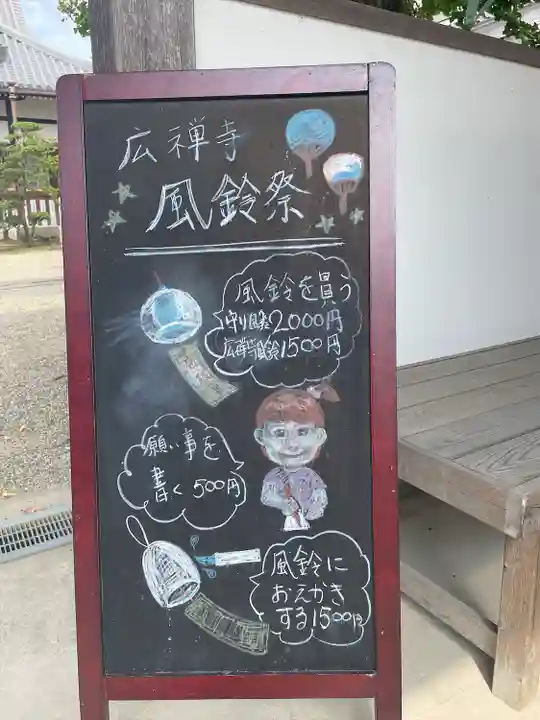 広禅寺
風鈴祭
風鈴を買う
守り風鈴2000円
広禅寺風鈴1500円
願い事を
書く500円
風鈴に
おえかき
する1500円